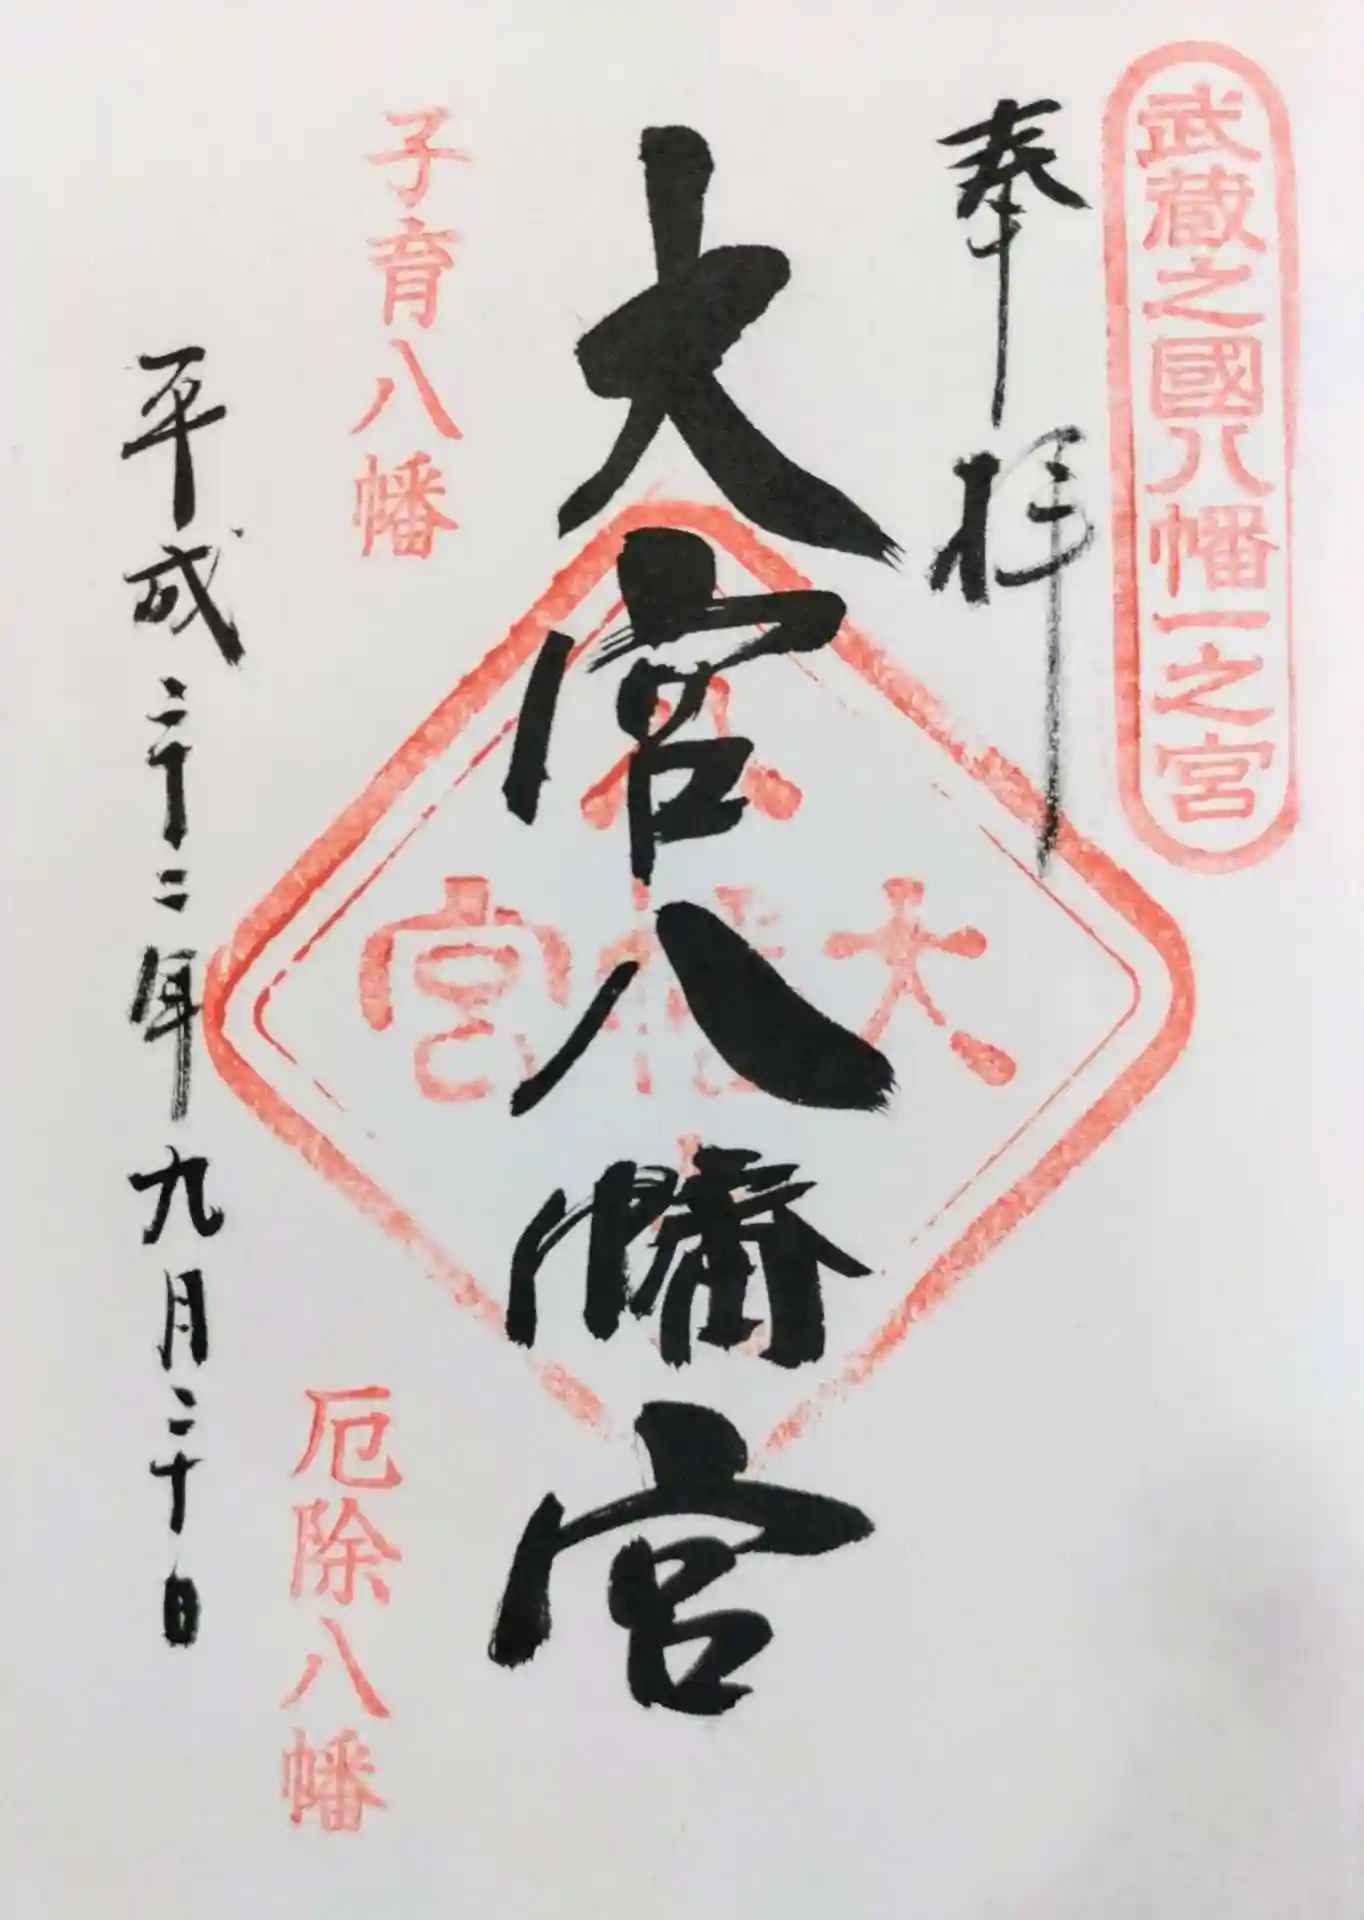 武蔵之國八幡一之宮
奉拝
大宮八幡宮
大宮
子育八幡
厄除八幡
平成二十二年九月二十日